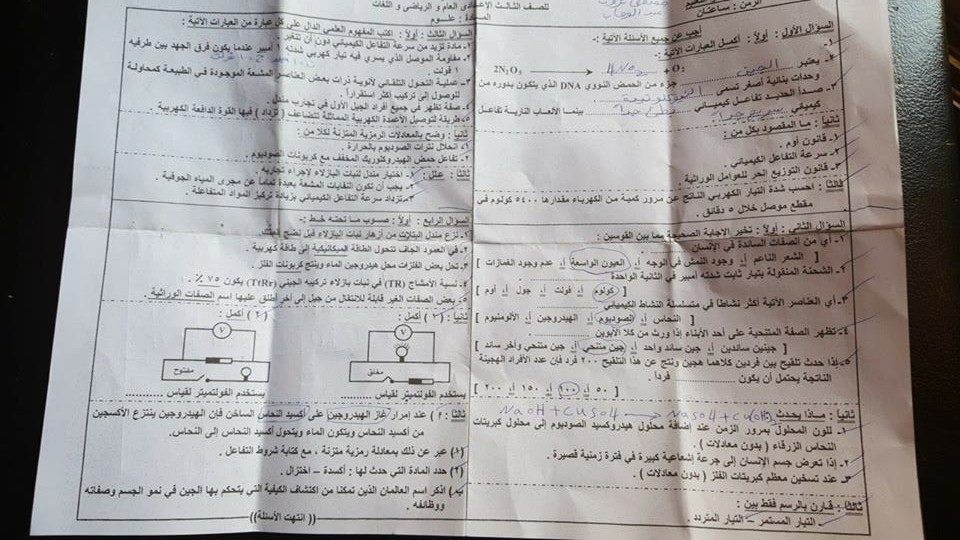 للصف الثالث الإعدادى العام و الرياضى و اللغات
الزمن : ساعتان
المادة : علوم
أجب عن جميع الأسئلة الآتية :
السؤال الأول : أولاً : أكمل العبارات الآتية :
١- 2N₂O₅ → 4NO₂ + O₂
٢- يعتبر الجين جزء من الحمض النووي DNA الذي يتكون بدوره من
وحدات بنائية أصغر تسمى
٣- صدأ الحديد تفاعل كيميائي بينما الألعاب النارية تفاعل
كيميائي
ثانياً : ما المقصود بكل من :
١- قانون أوم .
٢- سرعة التفاعل الكيميائي .
٣- قانون التوزيع الحر للعوامل الوراثية .
ثالثاً : احسب شدة التيار الكهربي الناتج عن مرور كمية من الكهرباء مقدارها ٥٤٠٠ كولوم في
مقطع موصل خلال ٥ دقائق .
السؤال الثاني : أولاً : تخير الإجابة الصحيحة مما بين القوسين :
١- أي من الصفات السائدة في الإنسان
[ الشعر الناعم أ، وجود النمش في الوجه أ، العيون الواسعة أ، عدم وجود الغمازات ]
٢- الشحنة المنقولة بتيار ثابت شدته أمبير في الثانية الواحدة
[ كولوم أ، فولت أ، جول أ، أوم ]
٣- أي العناصر الآتية أكثر نشاطا في متسلسلة النشاط الكيميائي
[ النحاس أ، الصوديوم أ، الهيدروجين أ، الألومنيوم ]
٤- تظهر الصفة المتنحية على أحد الأبناء إذا ورث من كلا الأبوين
[ جينين سائدين أ، جين سائد واحد أ، جين متنحي أ، جين متنحي وآخر سائد ]
٥- إذا حدث تلقيح بين فردين كلاهما هجين ونتج عن هذا التلقيح ٢٠٠ فرد فإن عدد الأفراد الهجينة
الناتجة يحتمل أن يكون فردا .
[ ٥٠ أ، ١٠٠ أ، ١٥٠ أ، ٢٠٠ ]
ثانياً : ماذا يحدث : NaOH + CuSO4 → NaSO4 + Cu(OH)
١- للون المحلول بمرور الزمن عند إضافة محلول هيدروكسيد الصوديوم إلى محلول كبريتات
النحاس الزرقاء ( بدون معادلات ) .
٢- إذا تعرض جسم الإنسان إلى جرعة إشعاعية كبيرة في فترة زمنية قصيرة .
٣- عند تسخين معظم كبريتات الفلز ( بدون معادلات ) .
ثالثاً : قارن بالرسم فقط بين :
- التيار المستمر – التيار المتردد .
السؤال الثالث : أولاً : اكتب المفهوم العلمي الدال على كل عبارة من العبارات الآتية :
١- مادة تزيد من سرعة التفاعل الكيميائي دون أن تتغير
٢- مقاومة الموصل الذي يسري فيه تيار كهربي شدته ١ أمبير عندما يكون فرق الجهد بين طرفيه
١ فولت .
٣- عملية التحول التلقائي لأنوية ذرات بعض العناصر المشعة الموجودة في الطبيعة كمحاولة
للوصول إلى تركيب أكثر استقراراً .
٤- صفة تظهر في جميع أفراد الجيل الأول في تجارب مندل .
٥- طريقة لتوصيل الأعمدة الكهربية المماثلة للتضاعف ( تزداد ) فيها القوة الدافعة الكهربية .
ثانياً : وضح بالمعادلات الرمزية المتزنة لكلاً من :
١- انحلال نترات الصوديوم بالحرارة .
٢- تفاعل حمض الهيدروكلوريك المخفف مع كربونات الصوديوم .
ثالثاً : علل : ١- اختيار مندل لنبات البازلاء لإجراء تجاربه .
٢- يجب أن تكون النفايات المشعة بعيدة تماماً عن مجرى المياه الجوفية .
٣- تزداد سرعة التفاعل الكيميائي بزيادة تركيز المواد المتفاعلة .
السؤال الرابع : أولاً : صوب ما تحته خط :
١- نزع مندل البتلات من أزهار نبات البازلاء قبل نضج المتك .
٢- في العمود الجاف تتحول الطاقة الميكانيكية إلى طاقة كهربية .
٣- تحل بعض الفلزات محل هيدروجين الماء وينتج كربونات الفلز .
٤- نسبة الأمشاج (TR) في نبات بازلاء تركيبه الجيني (TtRr) يكون ٧٥ ٪ .
٥- بعض الصفات الغير قابلة للانتقال من جيل إلى آخر أطلق عليها اسم الصفات الوراثية .
ثانياً : (٣) أكمل :
(٤) أكمل :
V
V
مغلق
مفتوح
يستخدم الفولتميتر لقياس ..........
يستخدم الفولتميتر لقياس ..........
ثالثاً : ٢) عند إمرار غاز الهيدروجين على أكسيد النحاس الساخن فإن الهيدروجين ينتزع الأكسجين
من أكسيد النحاس ويتكون الماء ويتحول أكسيد النحاس إلى النحاس.
(١) عبر عن ذلك بمعادلة رمزية متزنة ، مع كتابة شروط التفاعل .
(٢) حدد المادة التي حدث لها : أكسدة – اختزال .
ب) اذكر اسم العالمان الذين تمكنا من اكتشاف الكيفية التي يتحكم بها الجين في نمو الجسم وصفاته
ووظائفه .
(( انتهت الأسئلة ))